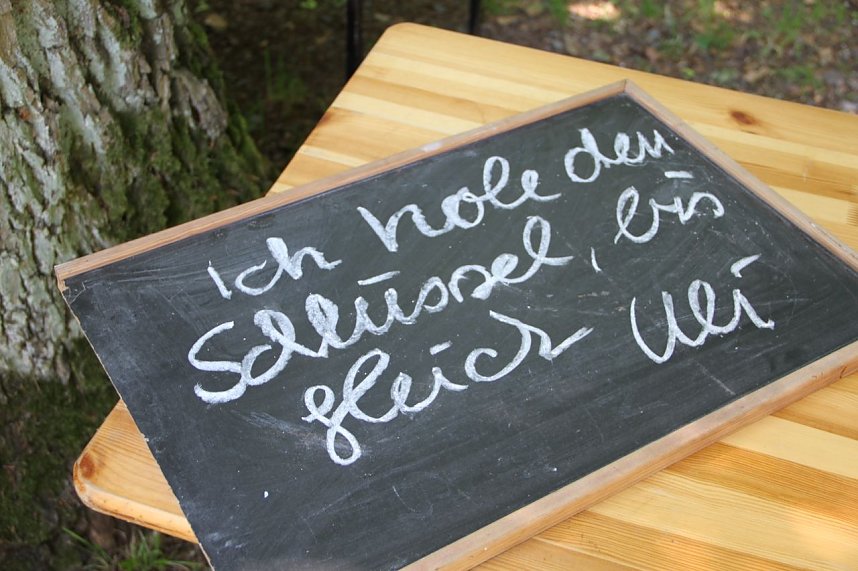 Ich hole den
Schlüssel, bis
gleich Uli